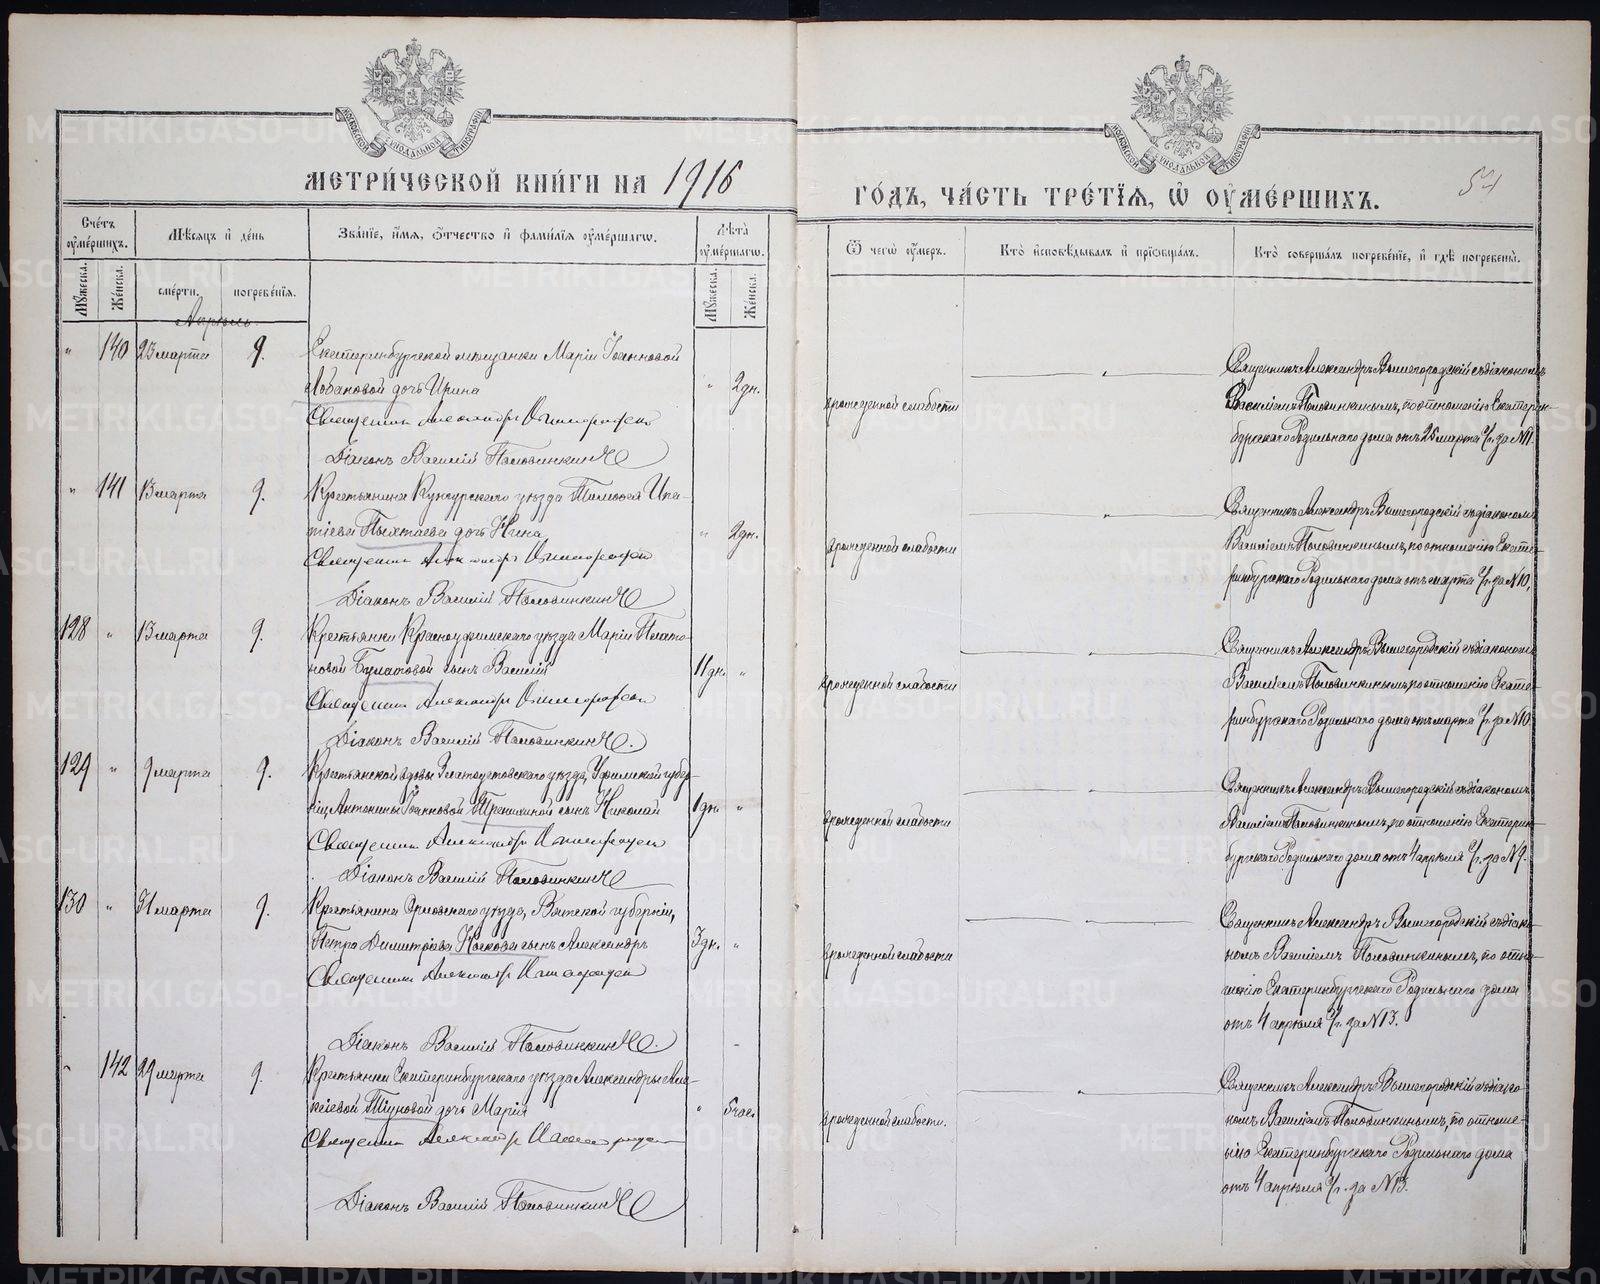 МЕТРИ́ЧЕСКОЙ КНИ́ГИ НА 1916
ГО́ДЪ, ЧА́СТЬ ТРЕ́ТІѦ, Ѽ ОУ҆МЕ́РШИХЪ.
54
Сче́тъ оу҆ме́ршихъ.
Мѣ́сяцъ и҆ де́нь
Зва́нїе, и҆́мя, ѻ҆́тчество и҆ фами́лїя оу҆ме́ршагѡ.
Лѣ́та оу҆ме́ршагѡ.
Ѿ чегѡ̀ оу҆́меръ.
Кто̀ и҆сповѣ́дывалъ и҆ прїѡбща́лъ.
Кто̀ соверша́лъ погребе́нїе, и҆ гдѣ̀ погребены̀.
Мꙋ́жеска.
Же́нска.
сме́рти.
погребе́нїя.
Мꙋ́жеска.
Же́нска.
Апрѣль
" 140 23 марта 9. Екатеринбургской мѣщанки Маріи Іоанновой
Лобановой дочь Ирина " 2 дн.
Священникъ Александръ Вышегородскій
Діаконъ Василій Половинкинъ
врожденной слабости
Священникъ Александръ Вышегородскій съ діакономъ
Василіемъ Половинкинымъ, по отношенію Екатерин-
бургскаго Родильнаго дома отъ 25 марта с/г. за № 11.
" 141 13 марта 9. Крестьянина Кунгурскаго уѣзда Тимоѳея Ипа-
тіева Пыхтаева дочь Нина " 2 дн.
Священникъ Александръ Вышегородскій
Діаконъ Василій Половинкинъ
врожденной слабости
Священникъ Александръ Вышегородскій съ діакономъ
Василіемъ Половинкинымъ, по отношенію Екате-
ринбургскаго Родильнаго дома отъ марта с/г. за № 10.
128 " 13 марта 9. Крестьянки Красноуфимскаго уѣзда Маріи Плато-
новой Булатовой сынъ Василій 11 дн. "
Священникъ Александръ Вышегородскій
Діаконъ Василій Половинкинъ.
врожденной слабости
Священникъ Александръ Вышегородскій съ діакономъ
Василіемъ Половинкинымъ по отношенію Екате-
ринбургскаго Родильнаго дома отъ марта с/г. за № 10
129 " 9 марта 9. Крестьянской вдовы Златоустовскаго уѣзда, Уфимской губер-
ніи, Антонины Іоанновой сынъ Николай 1 дн. "
Священникъ Александръ Вышегородскій
Діаконъ Василій Половинкинъ
врожденной слабости
Священникъ Александръ Вышегородскій съ діакономъ
Василіемъ Половинкинымъ, по отношенію Екатерин-
бургскаго Родильнаго дома отъ 4 апрѣля с/г. за № 9.
130 " 31 марта 9. Крестьянина Орловскаго уѣзда, Вятской губерніи,
Петра Димитріева сынъ Александръ 3 дн. "
Священникъ Александръ Вышегородскій
Діаконъ Василій Половинкинъ.
врожденной слабости
Священникъ Александръ Вышегородскій съ діако-
номъ Василіемъ Половинкинымъ, по отно-
шенію Екатеринбургскаго Родильнаго дома
отъ 4 апрѣля с/г. за № 13.
" 142 29 марта 9. Крестьянки Екатеринбургскаго уѣзда Александры Але-
ксіевой Тіуновой дочь Марія " 5 час.
Священникъ Александръ Вышегородскій
Діаконъ Василій Половинкинъ
врожденной слабости.
Священникъ Александръ Вышегородскій съ діако-
номъ Василіемъ Половинкинымъ, по отноше-
нію Екатеринбургскаго Родильнаго дома
отъ 4 апрѣля с/г. за № 13.
METRIKI.GASO-URAL.RU